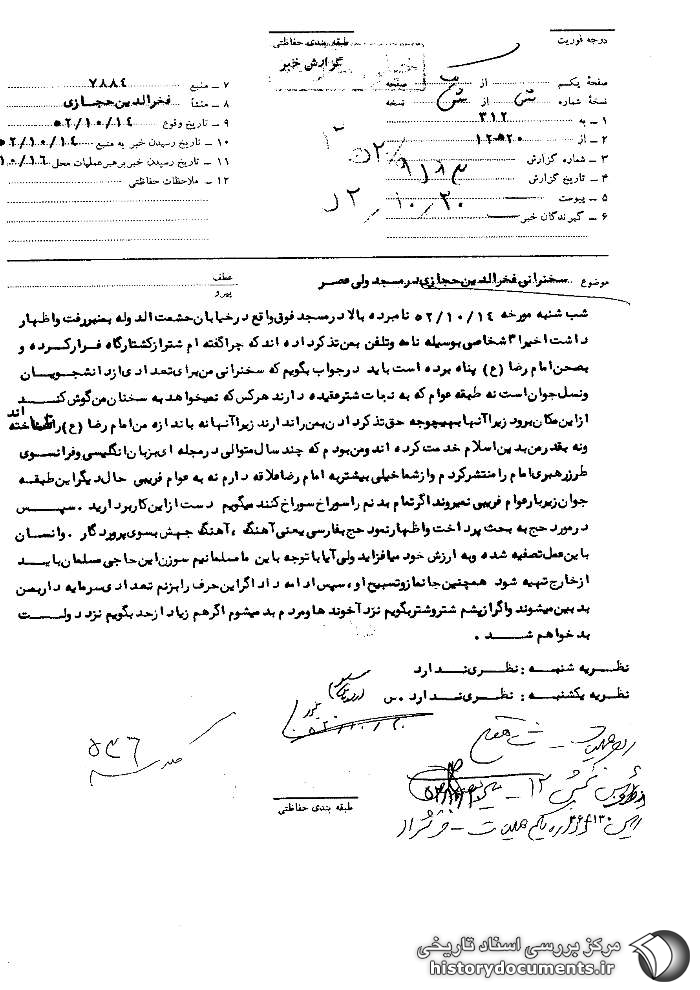 درجه فوریت
طبقه بندی حفاظتی
گزارش خبر
صفحه یکم از صفحه
نسخه شماره از نسخه
۱ ــ به ۳۱۲
۲ ــ از ۱۲ ۲۰
۳ ــ شماره گزارش
۴ ــ تاریخ گزارش ۵۲/۱۰/۲۰
۵ ــ پیوست
۶ ــ گیرندگان خبر
۷ ــ منبع ۷۸۸۴
۸ ــ منشأ فخرالدین حجازی
۹ ــ تاریخ وقوع ۵۲/۱۰/۱۴
۱۰ ــ تاریخ رسیدن خبر به منبع ۵۲/۱۰/۱۴
۱۱ ــ تاریخ رسیدن خبر برهبر عملیات محل ۱۰/۱۶
۱۲ ــ ملاحظات حفاظتی
موضوع سخنرانی فخرالدین حجازی در مسجد ولی عصر
عطف
پیرو
شب شنبه مورخه ۵۲/۱۰/۱۴ نامبرده بالا در مسجد فوق واقع در خیابان حشمت الدوله بمنبر رفت و اظهار
داشت اخیرا اشخاصی بوسیله نامه و تلفن بمن تذکر داده اند که چرا گفته ام شتر از کشتارگاه فرار کرده و
بصحن امام رضا (ع) پناه برده است باید در جواب بگویم که سخنرانی من برای تعدادی از دانشجویان
و نسل جوان است نه طبقه عوام که به نجات شتر عقیده دارند هرکس که نمیخواهد به سخنان من گوش کند
از این مکان برود زیرا آنها بهیچوجه حق تذکر دادن بمن را ندارند زیرا آنها نه باندازه من امام رضا (ع) را شناخته اند
و نه بقدر من بدین اسلام خدمت کرده اند و من بودم که چند سال متوالی در مجله ای بزبان انگلیسی و فرانسوی
طرز رهبری امام را منتشر کردم و از شما خیلی بیشتر به امام رضا علاقه دارم نه به عوام فریبی حال دیگر این طبقه
جوان زیر بار عوام فریبی نمیروند اگر تمام بدنم را سوراخ سوراخ کنند میگویم دست از این کار بردارید . سپس
در مورد حج به بحث پرداخت و اظهار نمود حج بفارسی یعنی آهنگ ، آهنگ جهش بسوی پروردگار . و انسان
با این عمل تصفیه شده و به ارزش خود میافزاید ولی آیا با توجه باین ما مسلمانیم سوزن این حاجی مسلمان باید
از خارج تهیه شود همچنین جانماز و تسبیح او ، سپس ادامه داد اگر این حرف را بزنم تعدادی سرمایه دار بمن
بدبین میشوند و اگر از پشم شتر و شتر بگویم نزد آخوندها و مردم بد میشوم اگر هم زیاد از حد بگویم نزد دولت
بد خواهم شد .
نظریه شنبه : نظری ندارد
نظریه یکشنبه : نظری ندارد . س
۵۳۶
طبقه بندی حفاظتی
مرکز بررسی اسناد تاریخی
historydocuments.ir